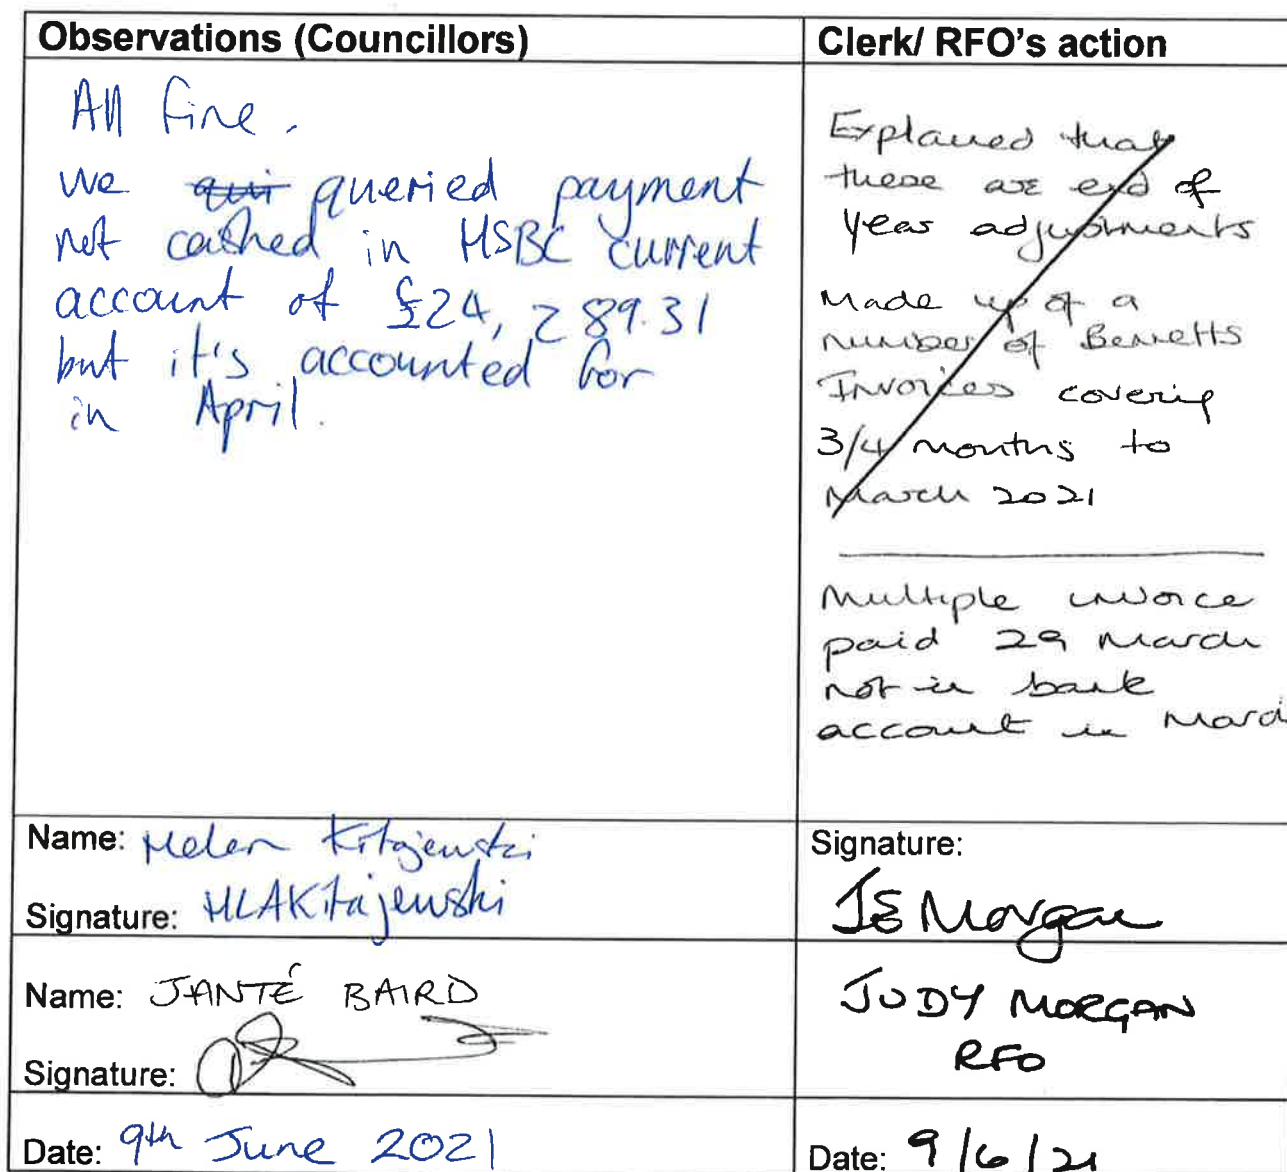 Observations (Councillors)
All fine.
We qui queried payment
not cashed in HSBC current
account of £24,289.31
but it's accounted for
in April.
Clerk/ RFO's action
Explained that
these are end of
year adjustments
Made up of a
number of Bennetts
Invoices covering
3/4 months to
March 2021
Multiple invoice
paid 29 March
not in bank
account in March
Name: Helen Kitajewski
Signature: HLAKitajewski
Signature:
JE Morgan
Name: JANTÉ BAIRD
Signature:
JUDY MORGAN
RFO
Date: 9th June 2021
Date: 9/6/21